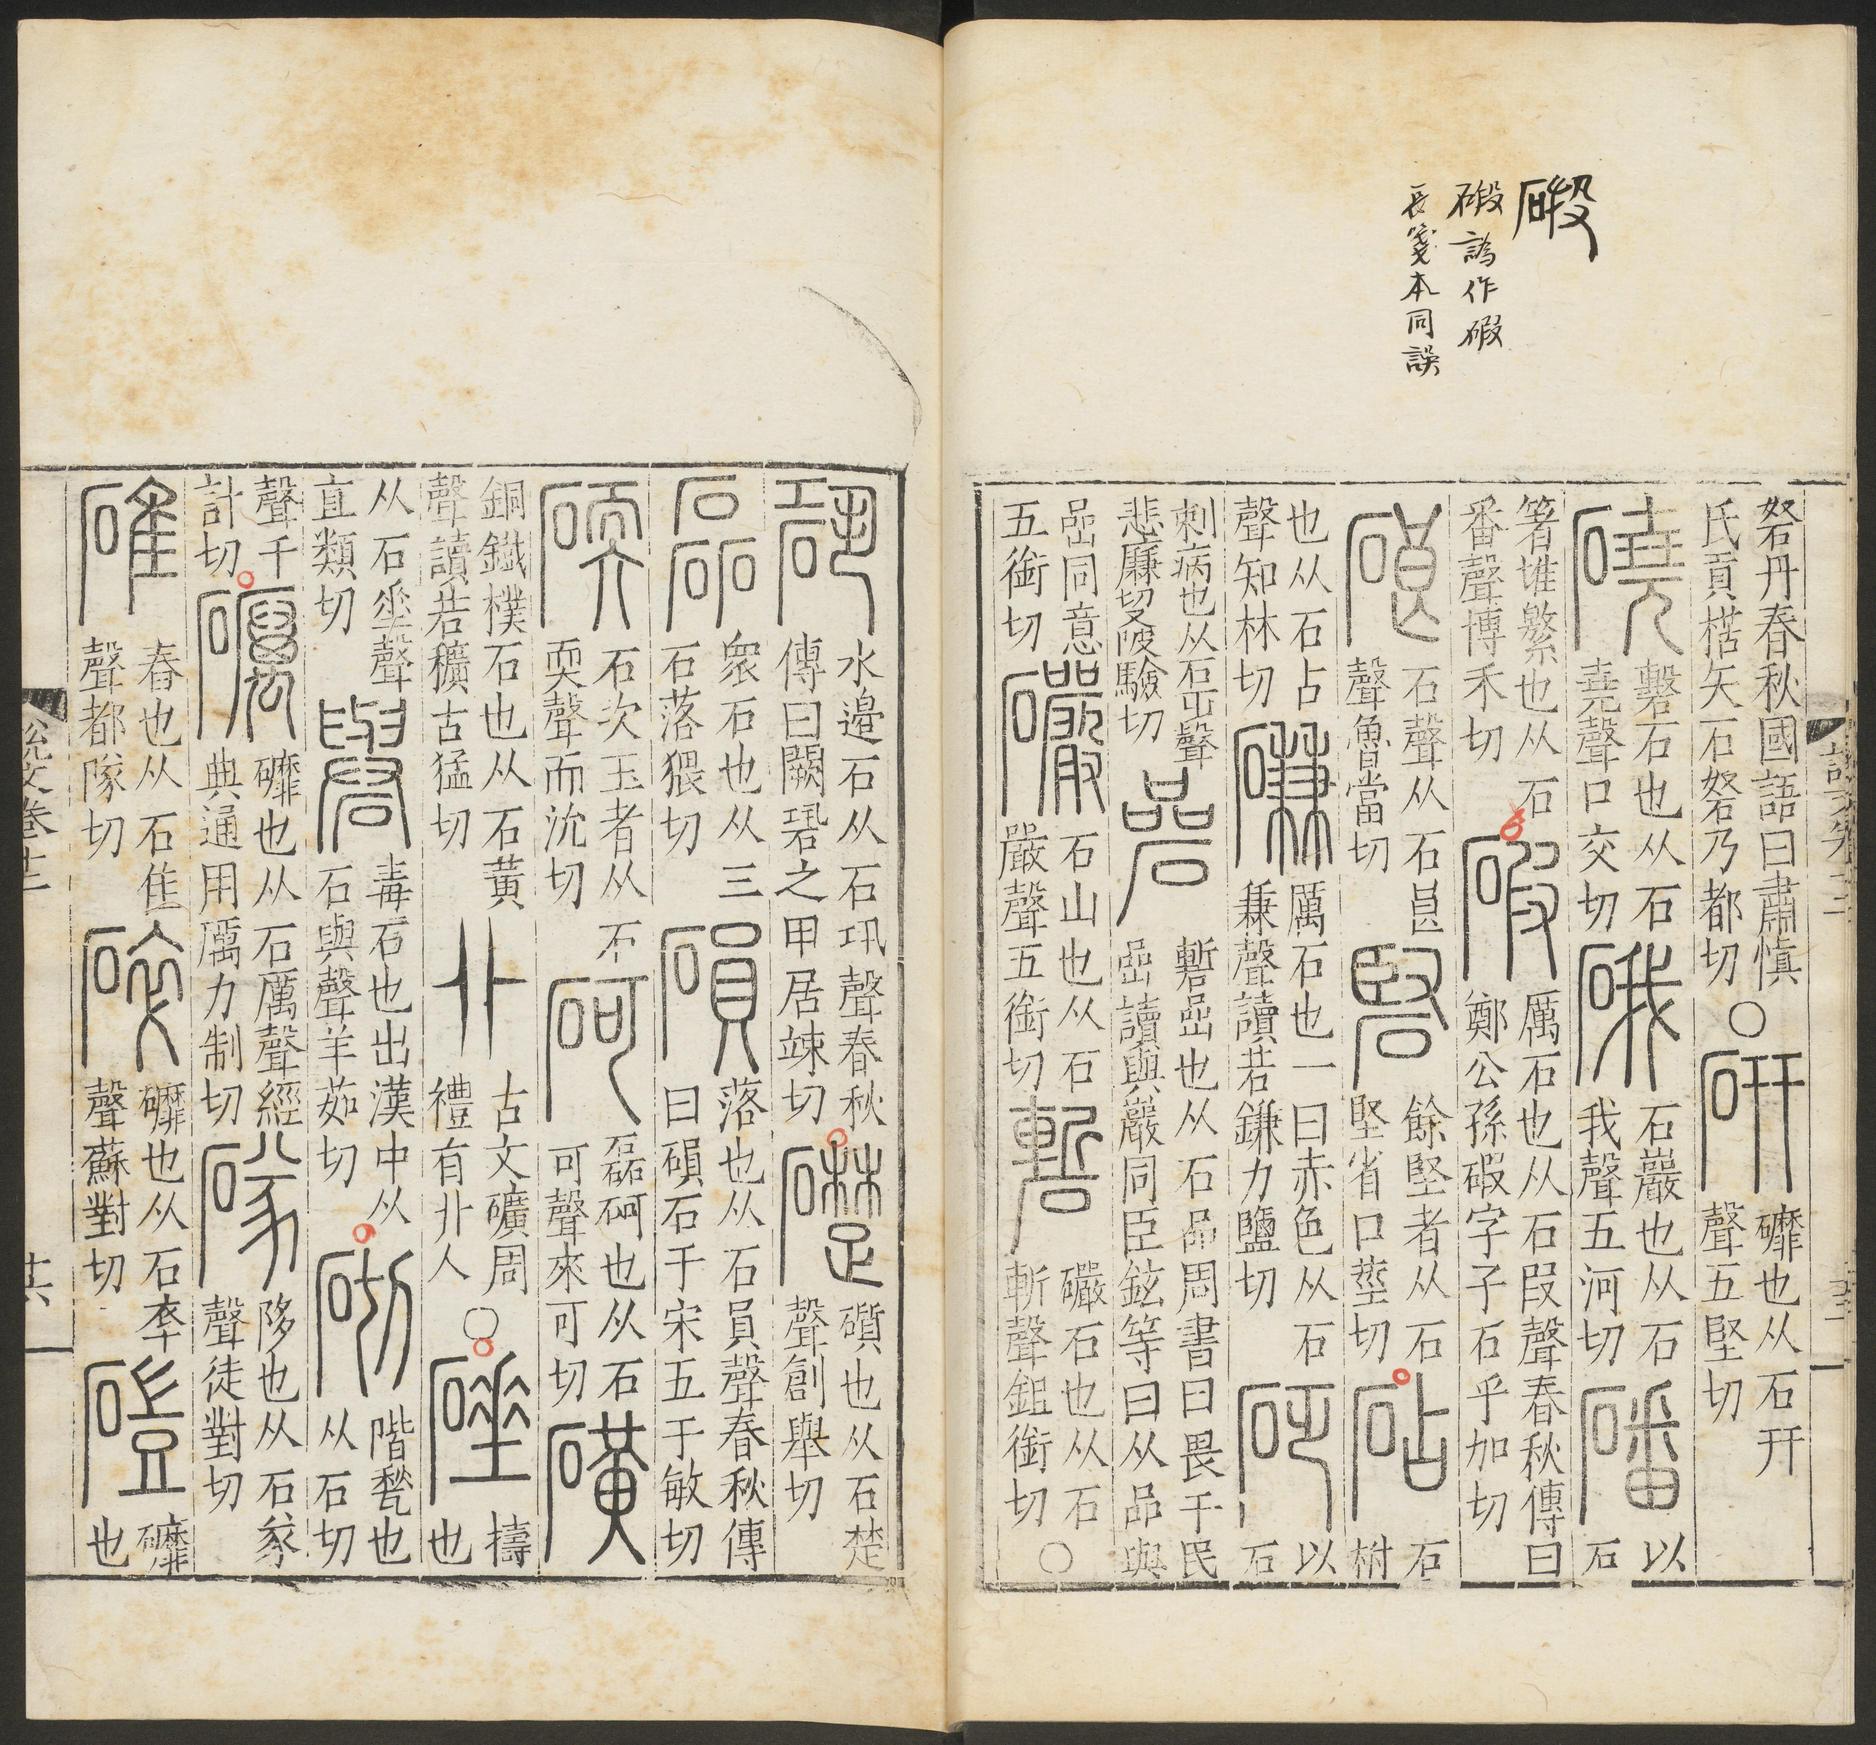 碫
碫譌作碬
長箋本同誤
砮丹春秋國語曰肅慎
氏貢楛矢石砮乃都切
○
硏
䃺也从石幵
聲五堅切
磽
磬石也从石
堯聲口交切
硪
石巖也从石
我聲五河切
磻
以
石
箸堆繁也从石
番聲博禾切
碬
厲石也从石叚聲春秋傳曰
鄭公孫碬字子石乎加切
硠
石聲从石㫐
聲魯當切
硻
餘堅者从石
堅省口莖切
砧
石
柎
也从石占
聲知林切
磏
厲石也一曰赤色从石
兼聲讀若鎌力鹽切
砭
以
石
刺病也从石乏聲
悲廉切又陂驗切
碞
暫嵒也从石品周書曰畏于民
嵒讀與巖同臣鉉等曰从品與
嵒同意
五銜切
礹
石山也从石
嚴聲五銜切
磛
礹石也从石
斬聲鉏銜切
○
䂬
水邊石从石巩聲春秋
傳曰闕䂬之甲居竦切
礎
礩也从石楚
聲創舉切
磊
衆石也从三
石落猥切
磒
落也从石員聲春秋傳
曰磒石于宋五于敏切
碝
石次玉者从石
耎聲而沇切
砢
磊砢也从石
可聲來可切
磺
銅鐵樸石也从石黃
聲讀若穬古猛切
卝
古文礦周
禮有卝人
○
硾
擣
也
从石垂聲
直類切
礜
毒石也出漢中从
石與聲羊茹切
砌
階甃也
从石切
聲千
計切
礪
䃺也从石厲聲經
典通用厲力制切
䃍
陊也从石㒸
聲徒對切
碓
舂也从石隹
聲都隊切
碎
䃺也从石卒
聲蘇對切
磑
䃺
也
說文卷十二
十六